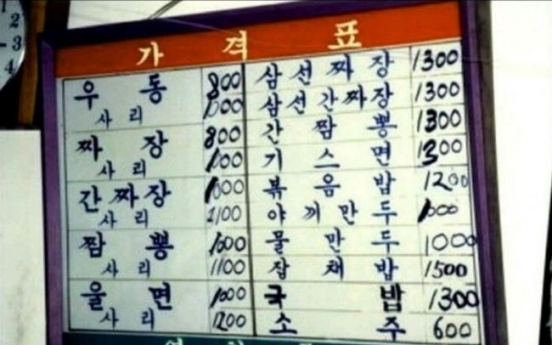 1
2
3
4
가 격 표
우 동 800
사 리 1000
짜 장 800
사 리 1100
간 짜 장 1000
사 리 1100
짬 뽕 1000
사 리 1100
울 면 1000
사 리 1200
삼 선 짜 장 1300
삼 선 간 짜 장 1300
간 짬 뽕 1300
기 스 면 1300
볶 음 밥 1200
야 끼 만 두 1000
물 만 두 1000
잡 채 밥 1500
국 밥 1300
소 주 600